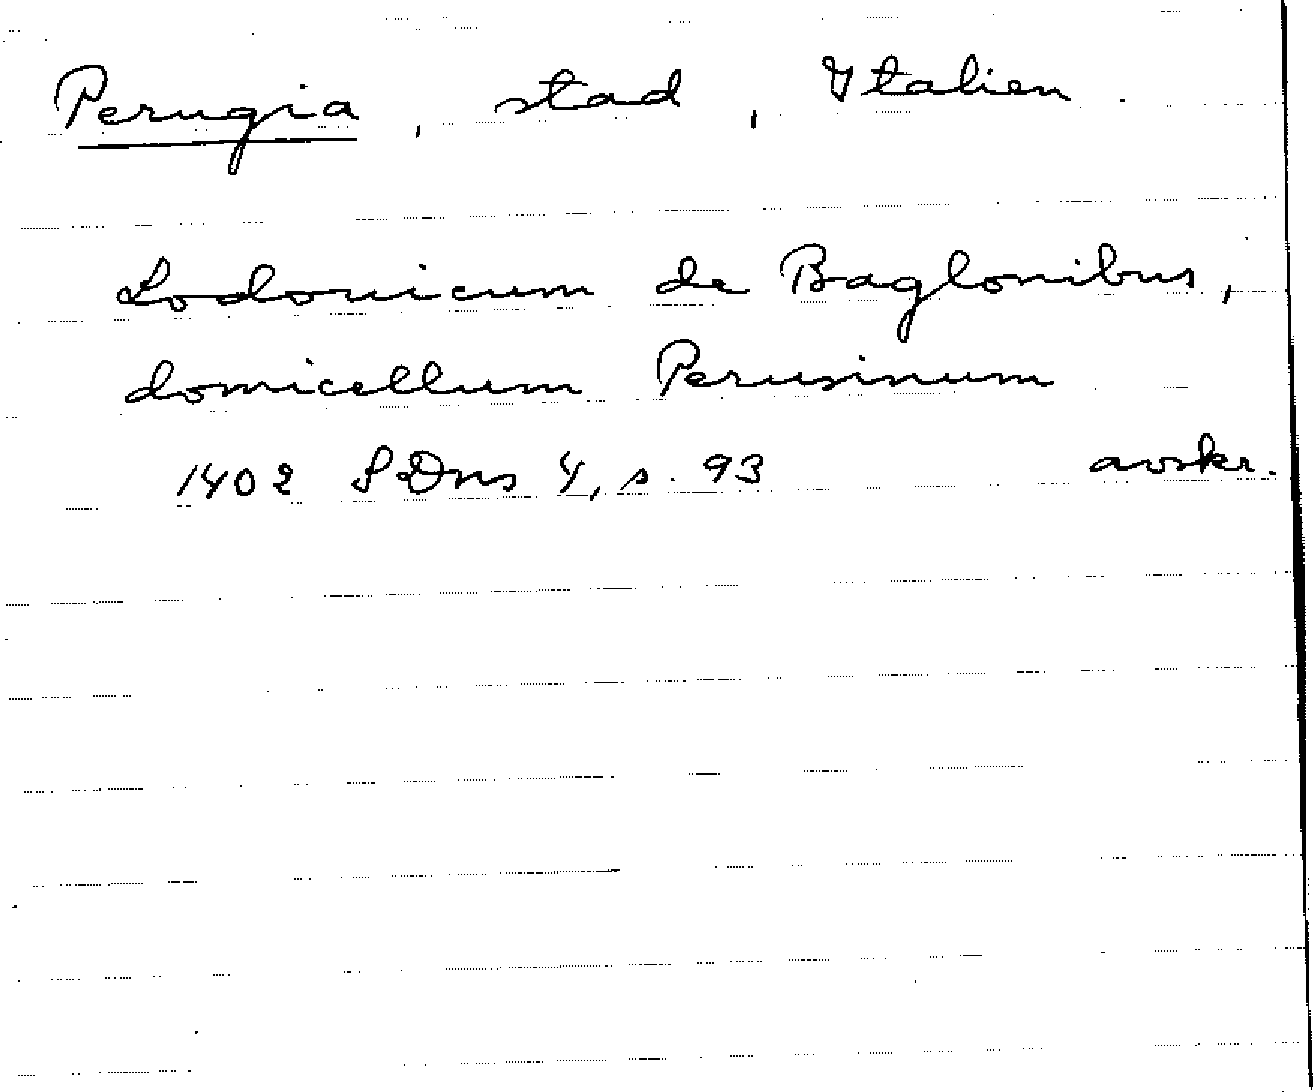 Perugia, stad, Italien.
Lodouicum de Baglonibus,
domicellum Perusinum
1402 SDns 4, s. 93 avskr.